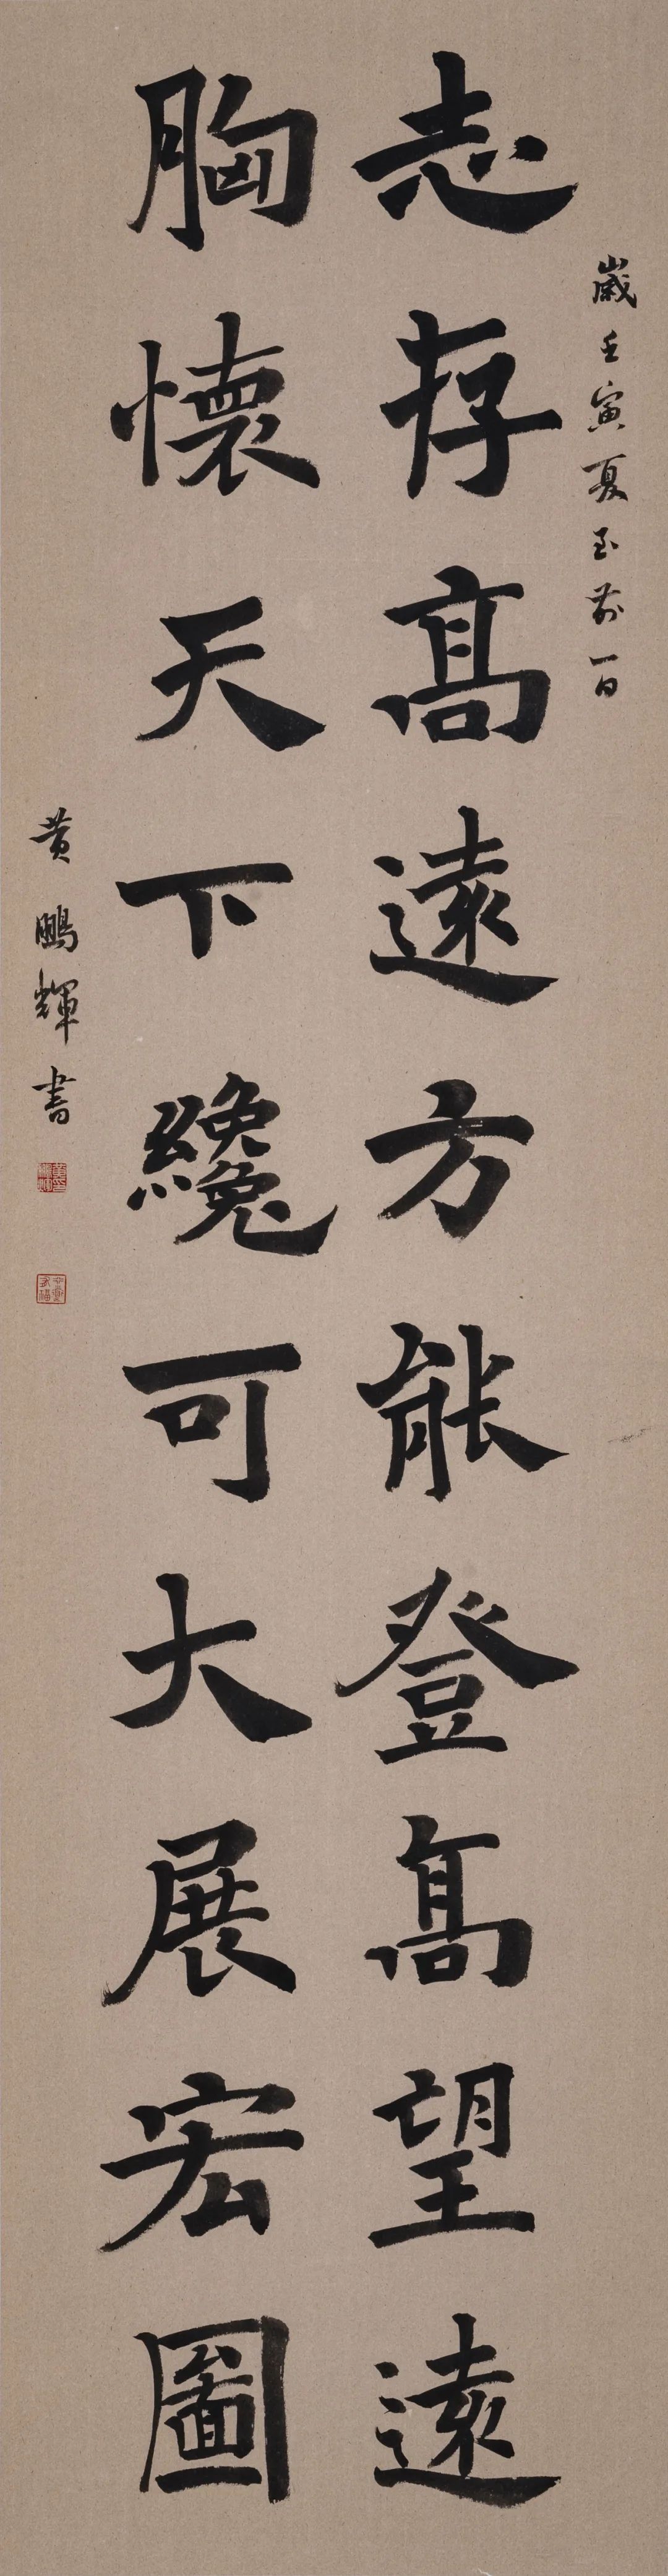 歲壬寅夏至前一日
志存高遠方能登高望遠
胸懷天下纔可大展宏圖
黄鵬輝書